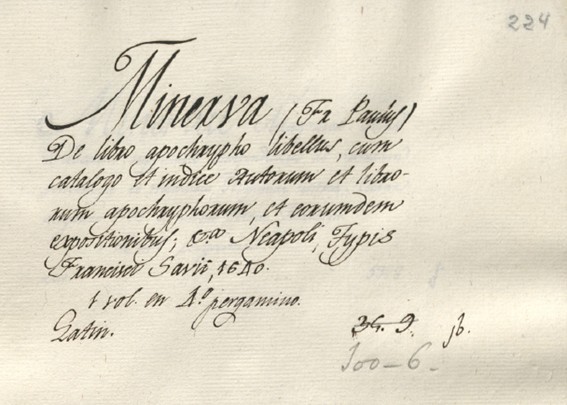 224
Minerva (Fr Paulus)
De libro apochrypho libellus, cum
catalogo et indice Autorum et libro-
rum apochryphorum, et eorumdem
expositionibus; Neapoli, Typis
Francisci Savii, 1640.
1 vol. en 4.º pergamino.
Latin.
36. 9. jb.
100-6-